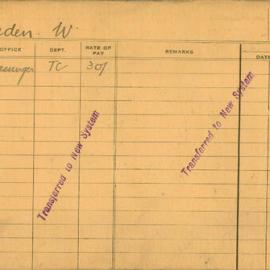 eden. W.
OFFICE DEPT. RATE OF PAY REMARKS DATE
essenger TC 30/
Transferred to New System
Transferred to New System